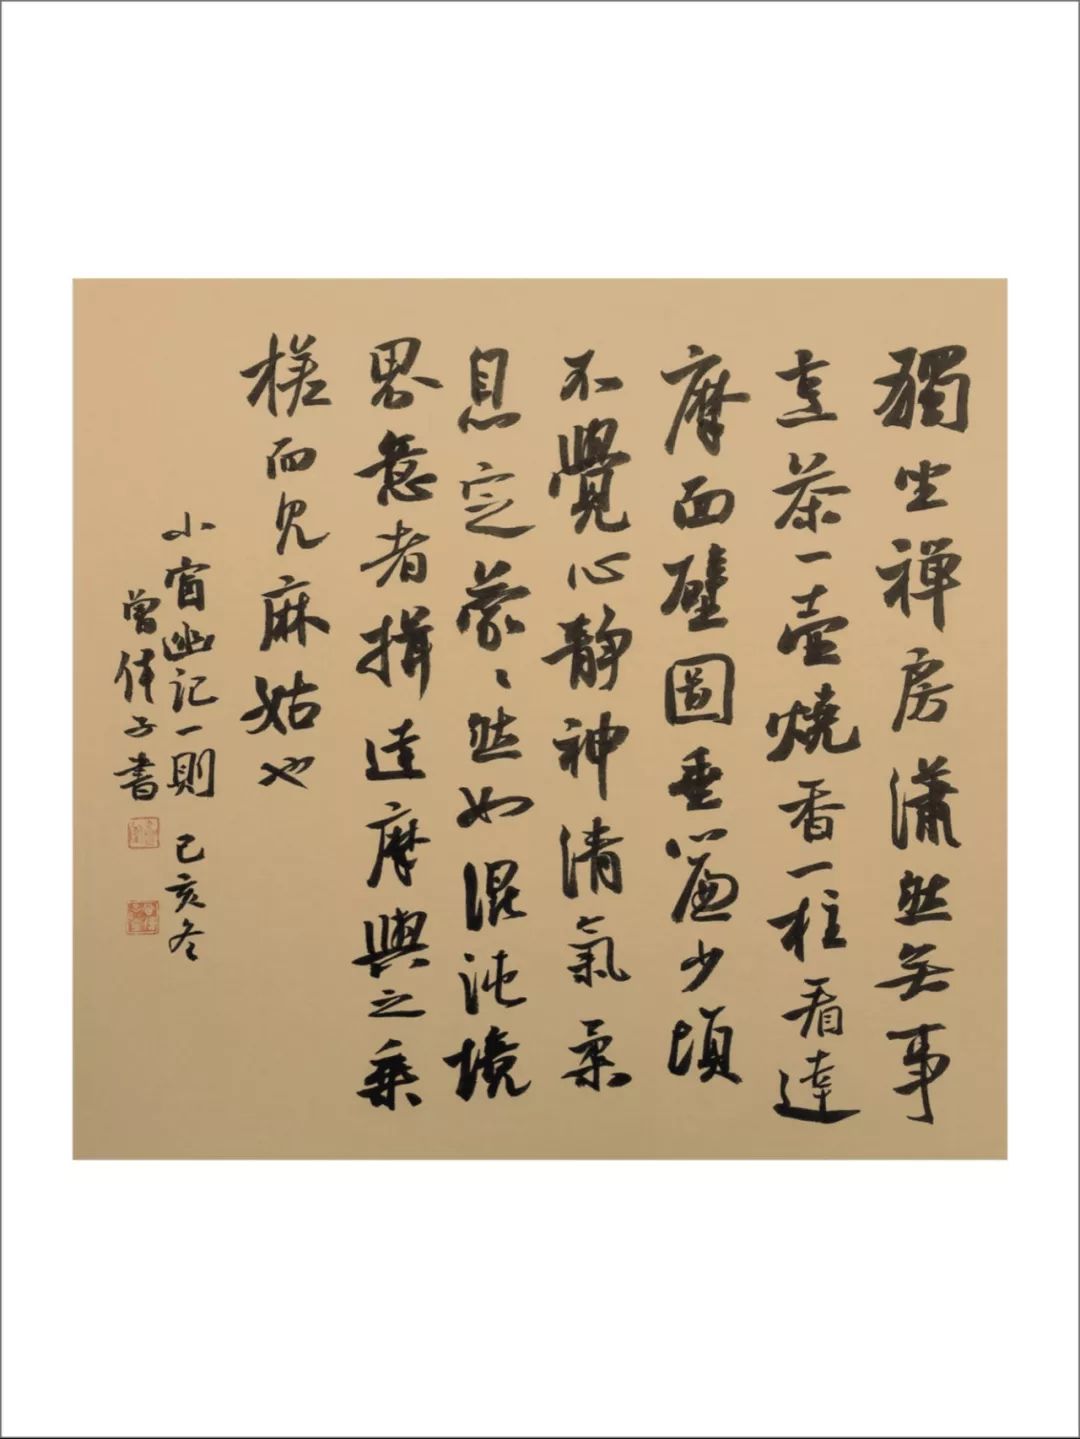 獨坐禅房潇然無事
烹茶一壺燒香一柱看達
摩面壁圖垂簾少頃
不覺心静神清氣柔
息定蒙〻然如混沌境
界意者揖達摩與之乘
槎而見麻姑也
小窗幽记一則 己亥冬
曾倚子書